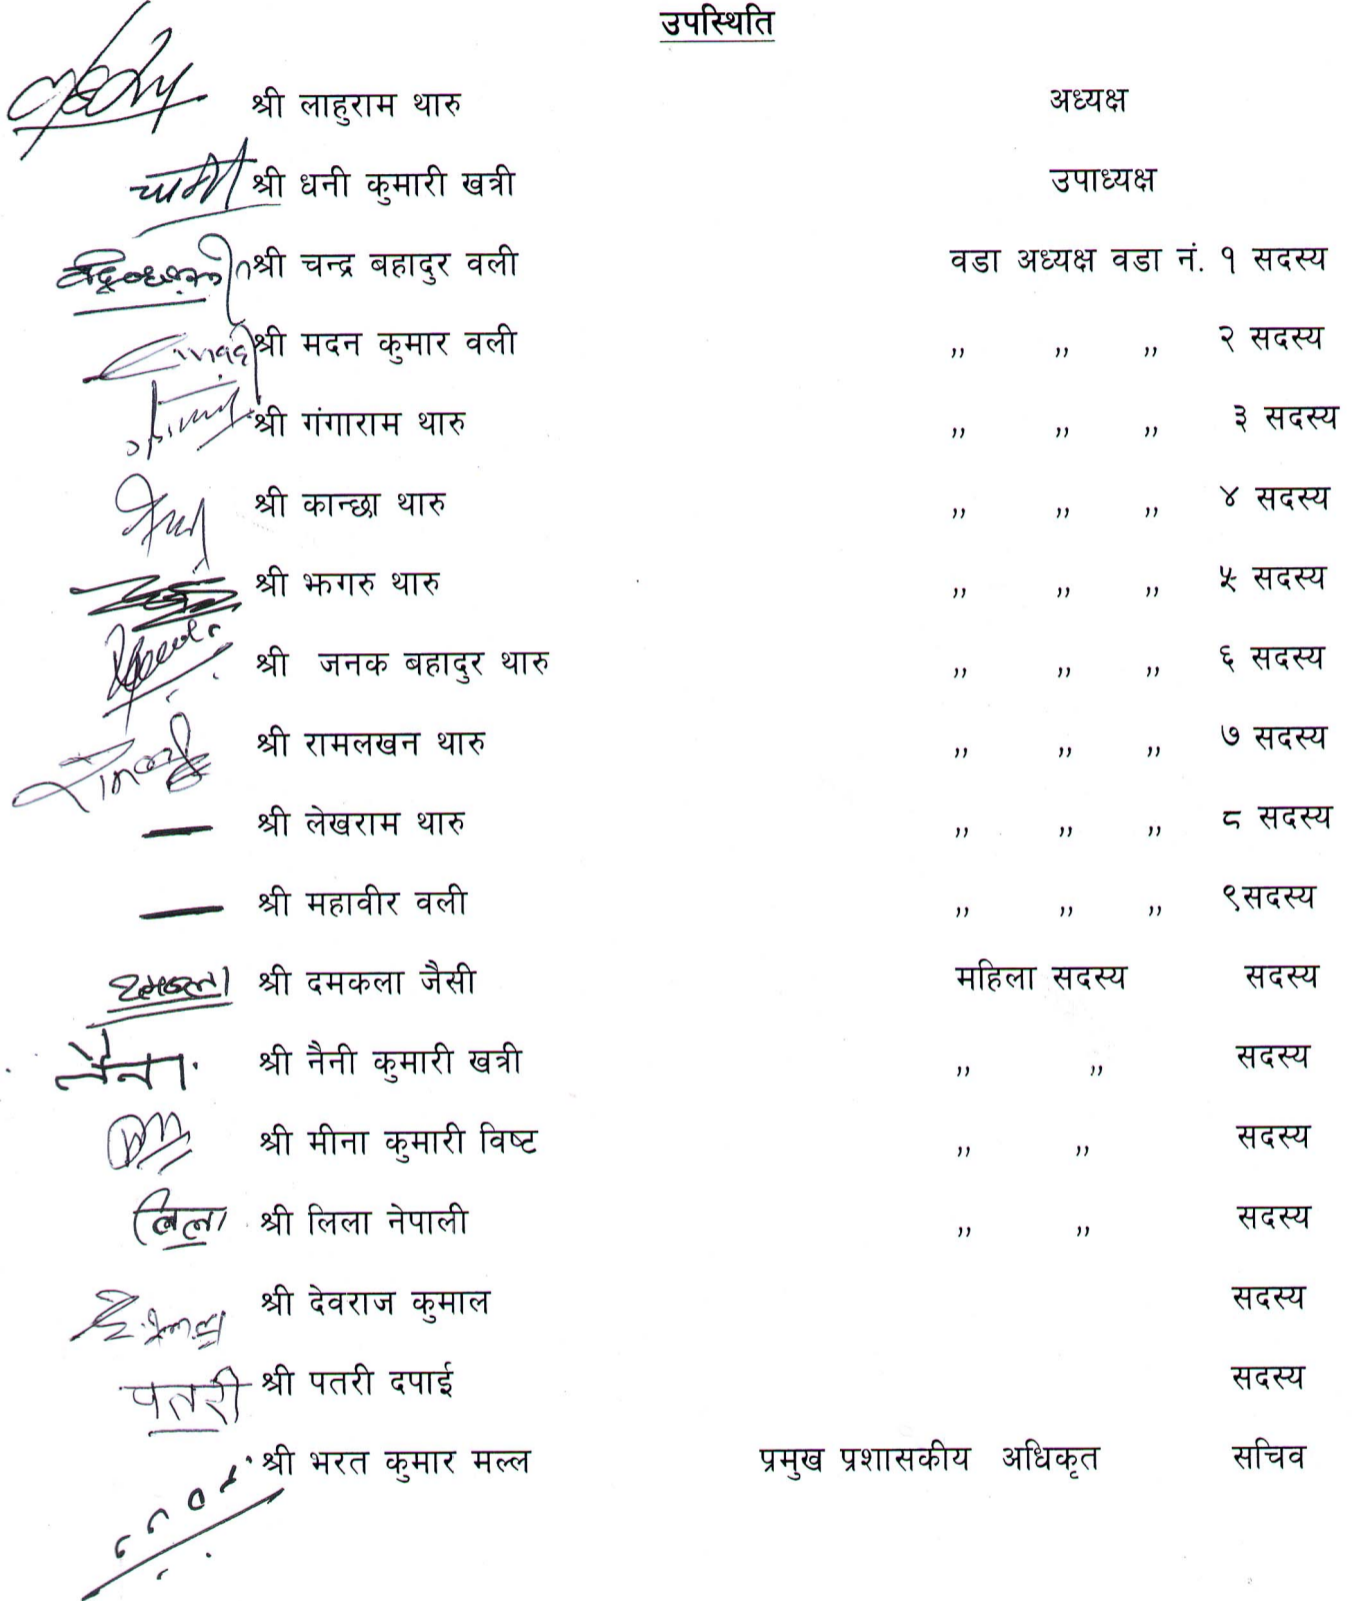 उपस्थिति
श्री लाहुराम थारु अध्यक्ष
श्री धनी कुमारी खत्री उपाध्यक्ष
श्री चन्द्र बहादुर वली वडा अध्यक्ष वडा नं. १ सदस्य
श्री मदन कुमार वली ,, ,, ,, २ सदस्य
श्री गंगाराम थारु ,, ,, ,, ३ सदस्य
श्री कान्छा थारु ,, ,, ,, ४ सदस्य
श्री झगरु थारु ,, ,, ,, ५ सदस्य
श्री जनक बहादुर थारु ,, ,, ,, ६ सदस्य
श्री रामलखन थारु ,, ,, ,, ७ सदस्य
श्री लेखराम थारु ,, ,, ,, ८ सदस्य
श्री महावीर वली ,, ,, ,, ९सदस्य
श्री दमकला जैसी महिला सदस्य सदस्य
नैना श्री नैनी कुमारी खत्री ,, ,, सदस्य
श्री मीना कुमारी विष्ट ,, ,, सदस्य
लिला श्री लिला नेपाली ,, ,, सदस्य
श्री देवराज कुमाल सदस्य
पतरी श्री पतरी दपाई सदस्य
श्री भरत कुमार मल्ल प्रमुख प्रशासकीय अधिकृत सचिव